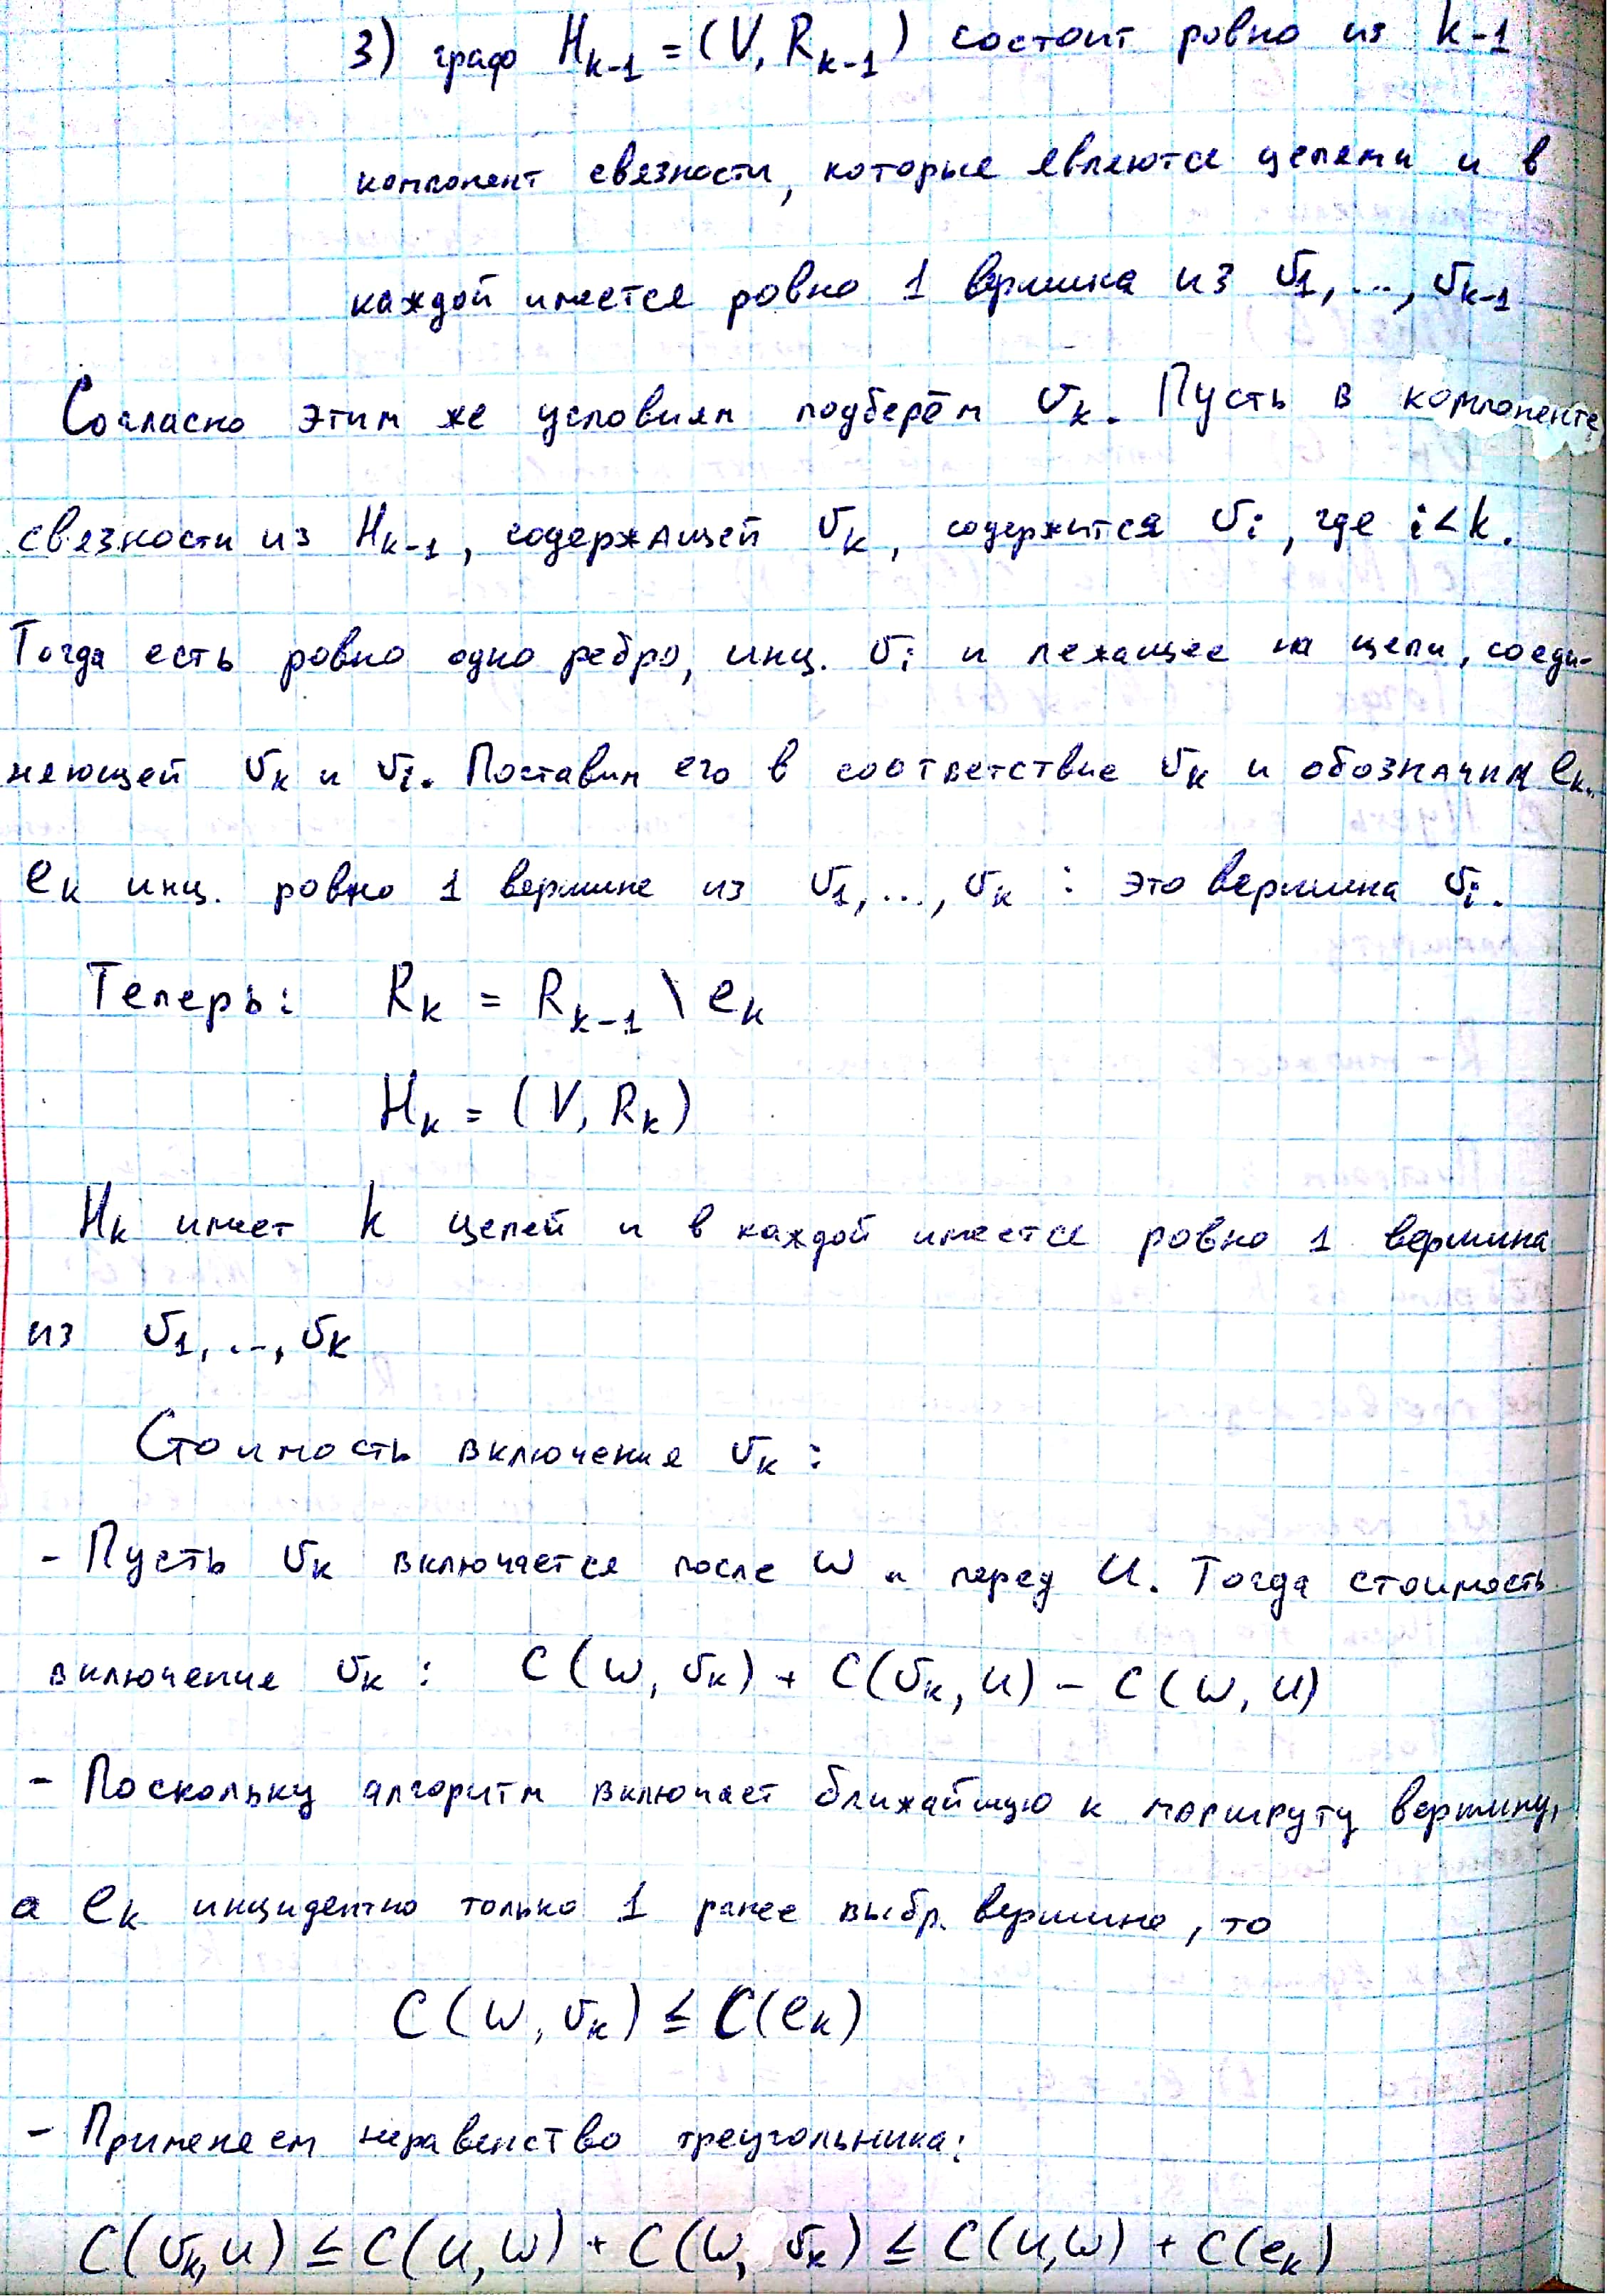 3) граф H_{k-1} = (V, R_{k-1}) состоит ровно из k-1
компонент связности, которые являются цепями и в
каждой имеется ровно 1 вершина из v_1, ..., v_{k-1}
Согласно этим же условиям подберём v_k. Пусть в компоненте
связности из H_{k-1}, содержащей v_k, содержится v_i, где i < k.
Тогда есть ровно одно ребро, инц. v_i и лежащее на цепи, соеди-
няющей v_k и v_i. Поставим его в соответствие v_k и обозначим e_k.
e_k инц. ровно 1 вершине из v_1, ..., v_k : это вершина v_i.
Теперь: R_k = R_{k-1} \ e_k
H_k = (V, R_k)
H_k имеет k цепей и в каждой имеется ровно 1 вершина
из v_1, ..., v_k
Стоимость включения v_k :
- Пусть v_k включается после w и перед u. Тогда стоимость
включения v_k : C(w, v_k) + C(v_k, u) - C(w, u)
- Поскольку алгоритм включает ближайшую к маршруту вершину,
а e_k инцидентно только 1 ранее выбр. вершине, то
C(w, v_k) ≤ C(e_k)
- Применяем неравенство треугольника:
C(v_k, u) ≤ C(u, w) + C(w, v_k) ≤ C(u, w) + C(e_k)